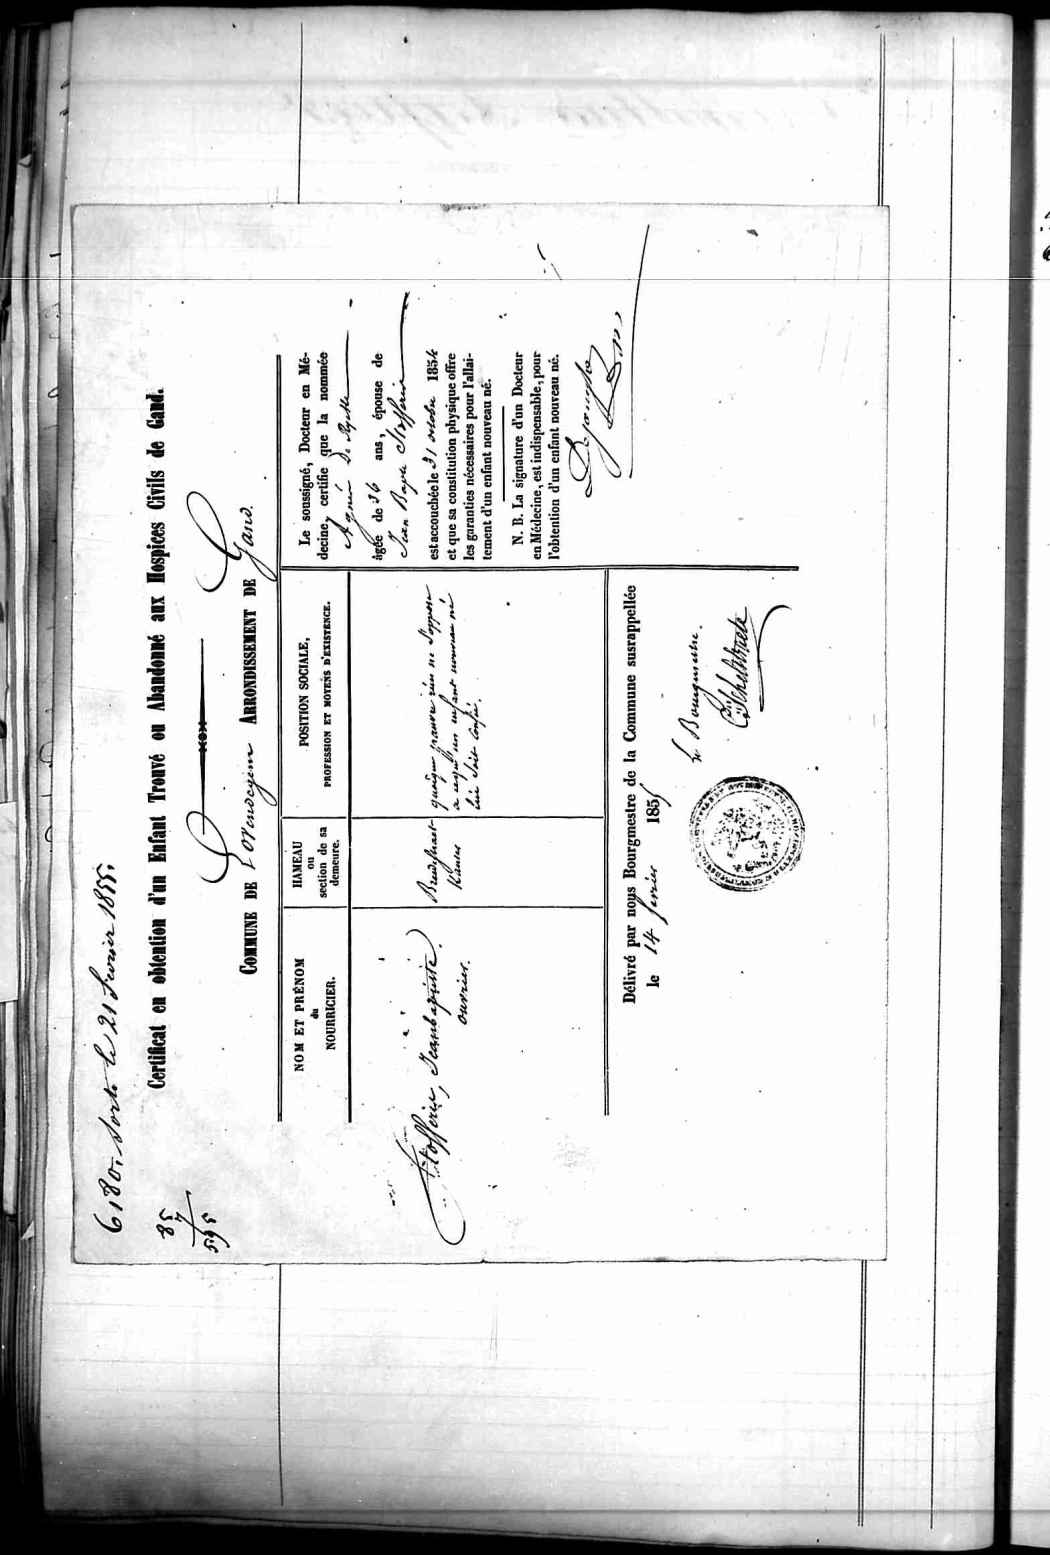 6180. Sorti le 21 Fevrier 1855.
85
7
595
Certificat en obtention d'un Enfant Trouvé ou Abandonné aux Hospices Civils de Gand.
COMMUNE DE Lovendegem ARRONDISSEMENT DE Gand.
NOM ET PRÉNOM
du
NOURRICIER.
HAMEAU
ou
section de sa
demeure.
POSITION SOCIALE,
PROFESSION ET MOYENS D'EXISTENCE.
Stofferis, Jeanbaptiste.
ouvrier.
quoique pauvre rien ne s'oppose
a ce qu'un enfant nouveau né
lui soit confié.
Le soussigné, Docteur en Mé-
decine, certifie que la nommée
Agnès De
âgée de 36 ans, épouse de
Jean Bapte Stofferis
est accouchée le 31 octobre 1854
et que sa constitution physique offre
les garanties nécessaires pour l'allai-
tement d'un enfant nouveau né.
N. B. La signature d'un Docteur
en Médecine, est indispensable, pour
l'obtention d'un enfant nouveau né.
Délivré par nous Bourgmestre de la Commune susrappellée
le 14 fevrier 1855
le Bourgmestre.